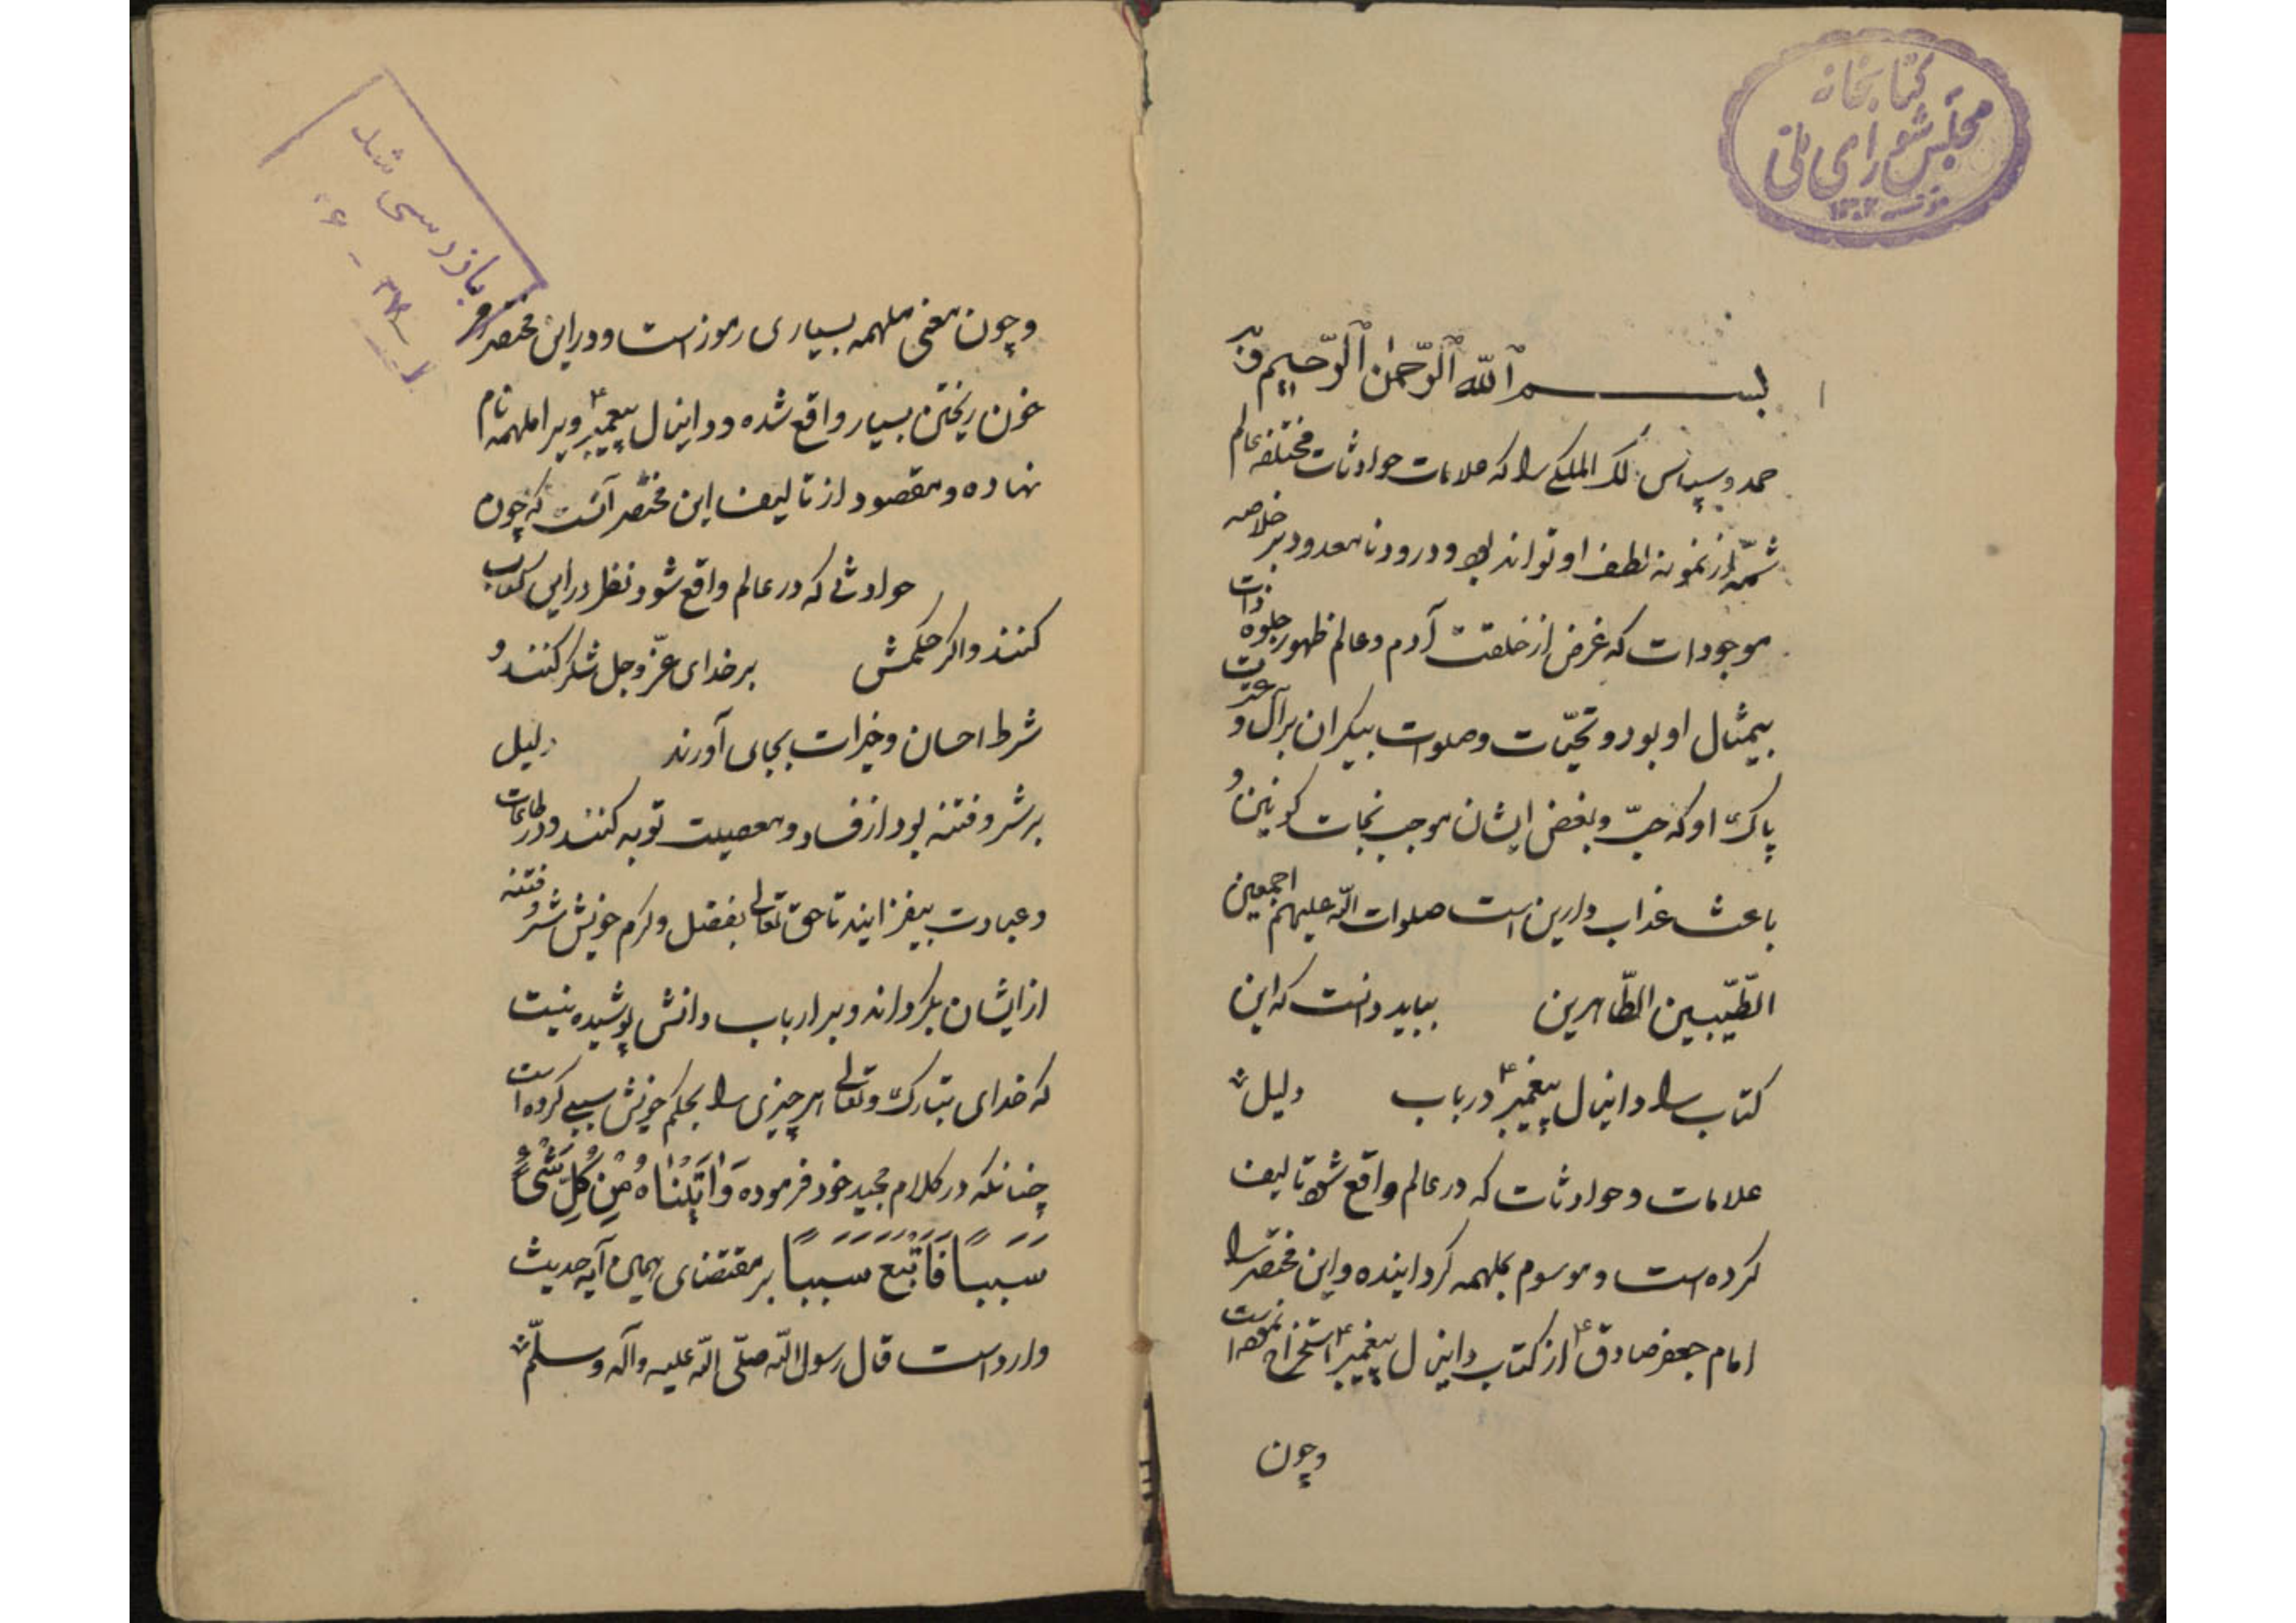 کتابخانه
مجلس شورای ملی
بسم الله الرحمن الرحیم و به
حمد و سپاس مالک الملکی را که علامات حوادثات مختلفه عالم
شمّه از نمونه لطف او تواند بود و درود نامعدود بر خلاصه
موجودات که غرض از خلقت آدم و عالم ظهور جلوه ذات
بیمثال او بود و تحیّات و صلوات بیکران بر آل و عترت
پاک او که حبّ و بغض ایشان موجب نجات کونین و
باعث عذاب دارین است صلوات الله علیهم اجمعین
الطّیّبین الطّاهرین بباید دانست که این
کتاب را دانیال پیغمبر ع در باب دلیل
علامات و حوادثات که در عالم واقع شود تالیف
کرده است و موسوم بملهمه گردانیده و این مختصر را
امام جعفر صادق ع از کتاب دانیال پیغمبر ع استخراج نموده است
و چون
بازرسی شد
۶ - ۳۷
و چون معنی ملهمه بسیاری رموز است و در این مختصر
خون ریختن بسیار واقع شده و دانیال پیغمبر ع ویرا ملهمه نام
نهاده و مقصود از تالیف این مختصر آنست که چون
حوادثی که در عالم واقع شود نظر در این کتاب
کنند و اگر حکمش بر خدای عزّ و جل شکر کنند و
شرط احسان و خیرات بجای آورند دلیل
بر شر و فتنه بود از فساد و معصیت توبه کنند و در طاعات
و عبادت بیفزایند تا حق تعالی بفضل و کرم خویش شر و فتنه
از ایشان بگرداند و بر ارباب دانش پوشیده نیست
که خدای تبارک و تعالی هر چیزی را بحکم خویش سببی کرده است
چنانکه در کلام مجید خود فرموده وَاٰتَیْنٰاهُ مِنْ کُلِّ شَیْءٍ
سَبَبًا فَاَتْبَعَ سَبَبًا بر مقتضای همین آیه حدیث
وارد است قال رسول الله صلّی الله علیه و آله و سلّم